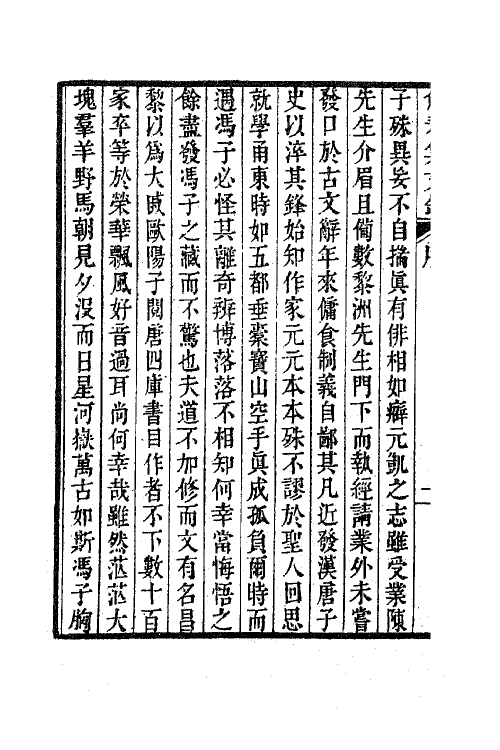 子殊異妄不自揣眞有俳相如癖元凱之志雖受業陳
先生介眉且備數黎洲先生門下而執經請業外未嘗
發口於古文辭年來傭食制義自鄙其凡近發漢唐子
史以淬其鋒始知作家元元本本殊不謬於聖人回思
就學甬東時如五都垂橐寶山空手眞成孤負爾時而
遇馮子必怪其離奇辨博落落不相知何幸當悔悟之
餘盡發馮子之藏而不驚也夫道不加修而文有名昌
黎以爲大戚歐陽子閱唐四庫書目作者不下數十百
家卒等於榮華飄風好音過耳尚何幸哉雖然茫茫大
塊羣羊野馬朝見夕沒而日星河嶽萬古如斯馮子胸